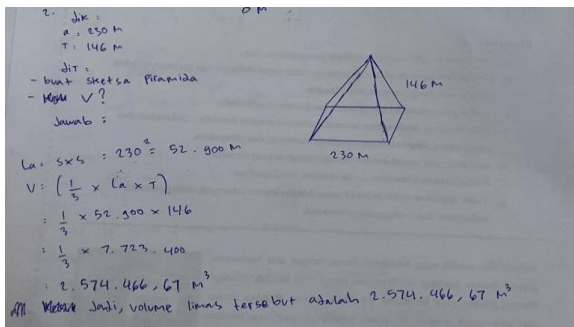 2. dik :
0 M
a : 230 M
T : 146 M
diT :
- buat sketsa Piramida
- V ?
Jawab :
146 M
230 M
La : S x S : 230² = 52.900 M
V : (1/3 x La x T)
: 1/3 x 52.900 x 146
: 1/3 x 7.723.400
: 2.574.466,67 M³
Jadi, volume limas tersebut adalah 2.574.466,67 M³